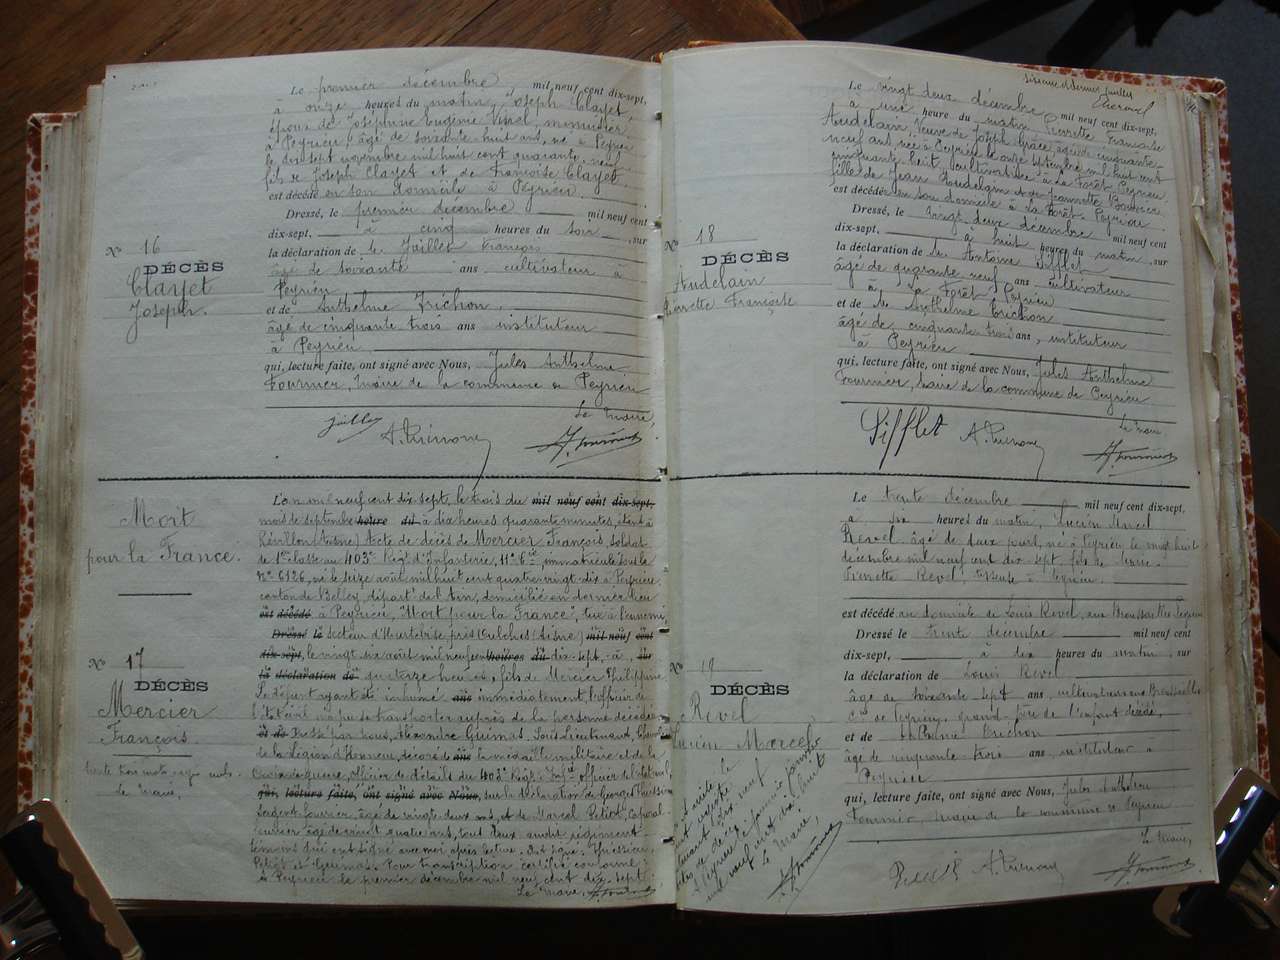 Le premier décembre mil neuf cent dix-sept,
à onze heures du matin, Joseph Clayet,
époux de Josephine Eugénie
à Peyrieu âgé de soixante huit ans, né à Peyrieu
le dix sept novembre mil huit cent quarante neuf
fils de Joseph Clayet et de Françoise Clayet,
est décédé en son domicile à Peyrieu.
Dressé, le premier décembre mil neuf cent
dix-sept, à cinq heures du soir, sur
la déclaration de
âgé de soixante ans cultivateur à
Peyrieu
et de Anthelme Trichon,
âgé de cinquante trois ans instituteur
à Peyrieu
qui, lecture faite, ont signé avec Nous, Jules Anthelme
Fournier, maire de la commune de Peyrieu
Le maire,
N° 16
DÉCÈS
Clayet
Joseph.
Mort
pour la France.
N° 17
DÉCÈS
Mercier
François.
trente trois mots rayés nuls.
L'an mil neuf cent dix-sept, le trois du mil neuf cent dix-sept,
mois de septembre heure du à dix heures quarante minutes, étant à
Révillon (Aisne) Acte de décès de Mercier François, soldat
de 1re classe au 403e Régt d'Infanterie, 11e Cie, immatriculé sous le
N° 6126, né le seize août mil huit cent quatre vingt dix à Peyrieu
canton de Belley, départt de l'Ain, domicilié en dernier lieu
est décédé à Peyrieu, "Mort pour la France", tué à l'ennemi
Dressé le secteur d'Heurtebise près Vulches (Aisne) mil neuf cent
dix-sept, le vingt six août mil neuf cent heures du dix-sept, à sur
la déclaration de quatorze heures, fils de Mercier Philippine
Le défunt ayant été inhumé ans immédiatement, l'officier de
l'état civil n'a pu se transporter auprès de la personne décédée
et de Dressé par nous, Alexandre Guimas, Sous Lieutenant, Chevalier
de la Légion d'Honneur, décoré de ans la médaille militaire et de la
Croix de guerre, Officier de détails du 403e Régt d'Infie officier de l'état civil,
qui, lecture faite, ont signé avec Nous, sur la déclaration de George
Sergent fourrier, âgé de vingt deux ans, et de Marcel Petiot, Caporal
fourrier âgé de vingt quatre ans, tout deux audit régiment
témoins qui ont signé avec moi après lecture. Ont signé:
Petiot et Guimas. Pour transcription certifié conforme
à Peyrieu le premier décembre mil neuf cent dix sept
Le maire,
Le vingt deux décembre mil neuf cent dix-sept,
à une heure du matin Pierrette Françoise
Audelain, Veuve de Joseph âgée de cinquante
neuf ans, née à Peyrieu le onze septembre mil huit cent
cinquante huit, cultivatrice à La Forêt, Peyrieu
fille de Jean Audelain et de Jeannette
est décédée en son domicile à la Forêt, Peyrieu.
Dressé, le vingt deux décembre mil neuf cent
dix-sept, à huit heures du matin, sur
la déclaration de Antoine Sifflet
âgé de quarante neuf ans cultivateur
à la Forêt Peyrieu
et de Anthelme Trichon
âgé de cinquante trois ans, instituteur
à Peyrieu
qui, lecture faite, ont signé avec Nous, Jules Anthelme
Fournier, maire de la commune de Peyrieu
Le maire
Sifflet
N° 18
DÉCÈS
Audelain
Pierrette Françoise
Le trente décembre mil neuf cent dix-sept,
à six heures du matin, Lucien Marcel
Revel âgé de deux jours, né à Peyrieu le vingt huit
décembre mil neuf cent dix sept, fils de Marie
Revel, à Peyrieu,
est décédé au domicile de Louis Revel,
Dressé le trente décembre mil neuf cent
dix-sept, à dix heures du matin, sur
la déclaration de Louis Revel
âgé de soixante sept ans, cultivateur
Cne de Peyrieu, grand père de l'enfant décédé,
et de
âgé de cinquante trois ans, instituteur à
Peyrieu
qui, lecture faite, ont signé avec Nous, Jules Anthelme
Fournier, maire de la commune de Peyrieu
Le maire,
N° 19
DÉCÈS
Revel
Lucien Marcel